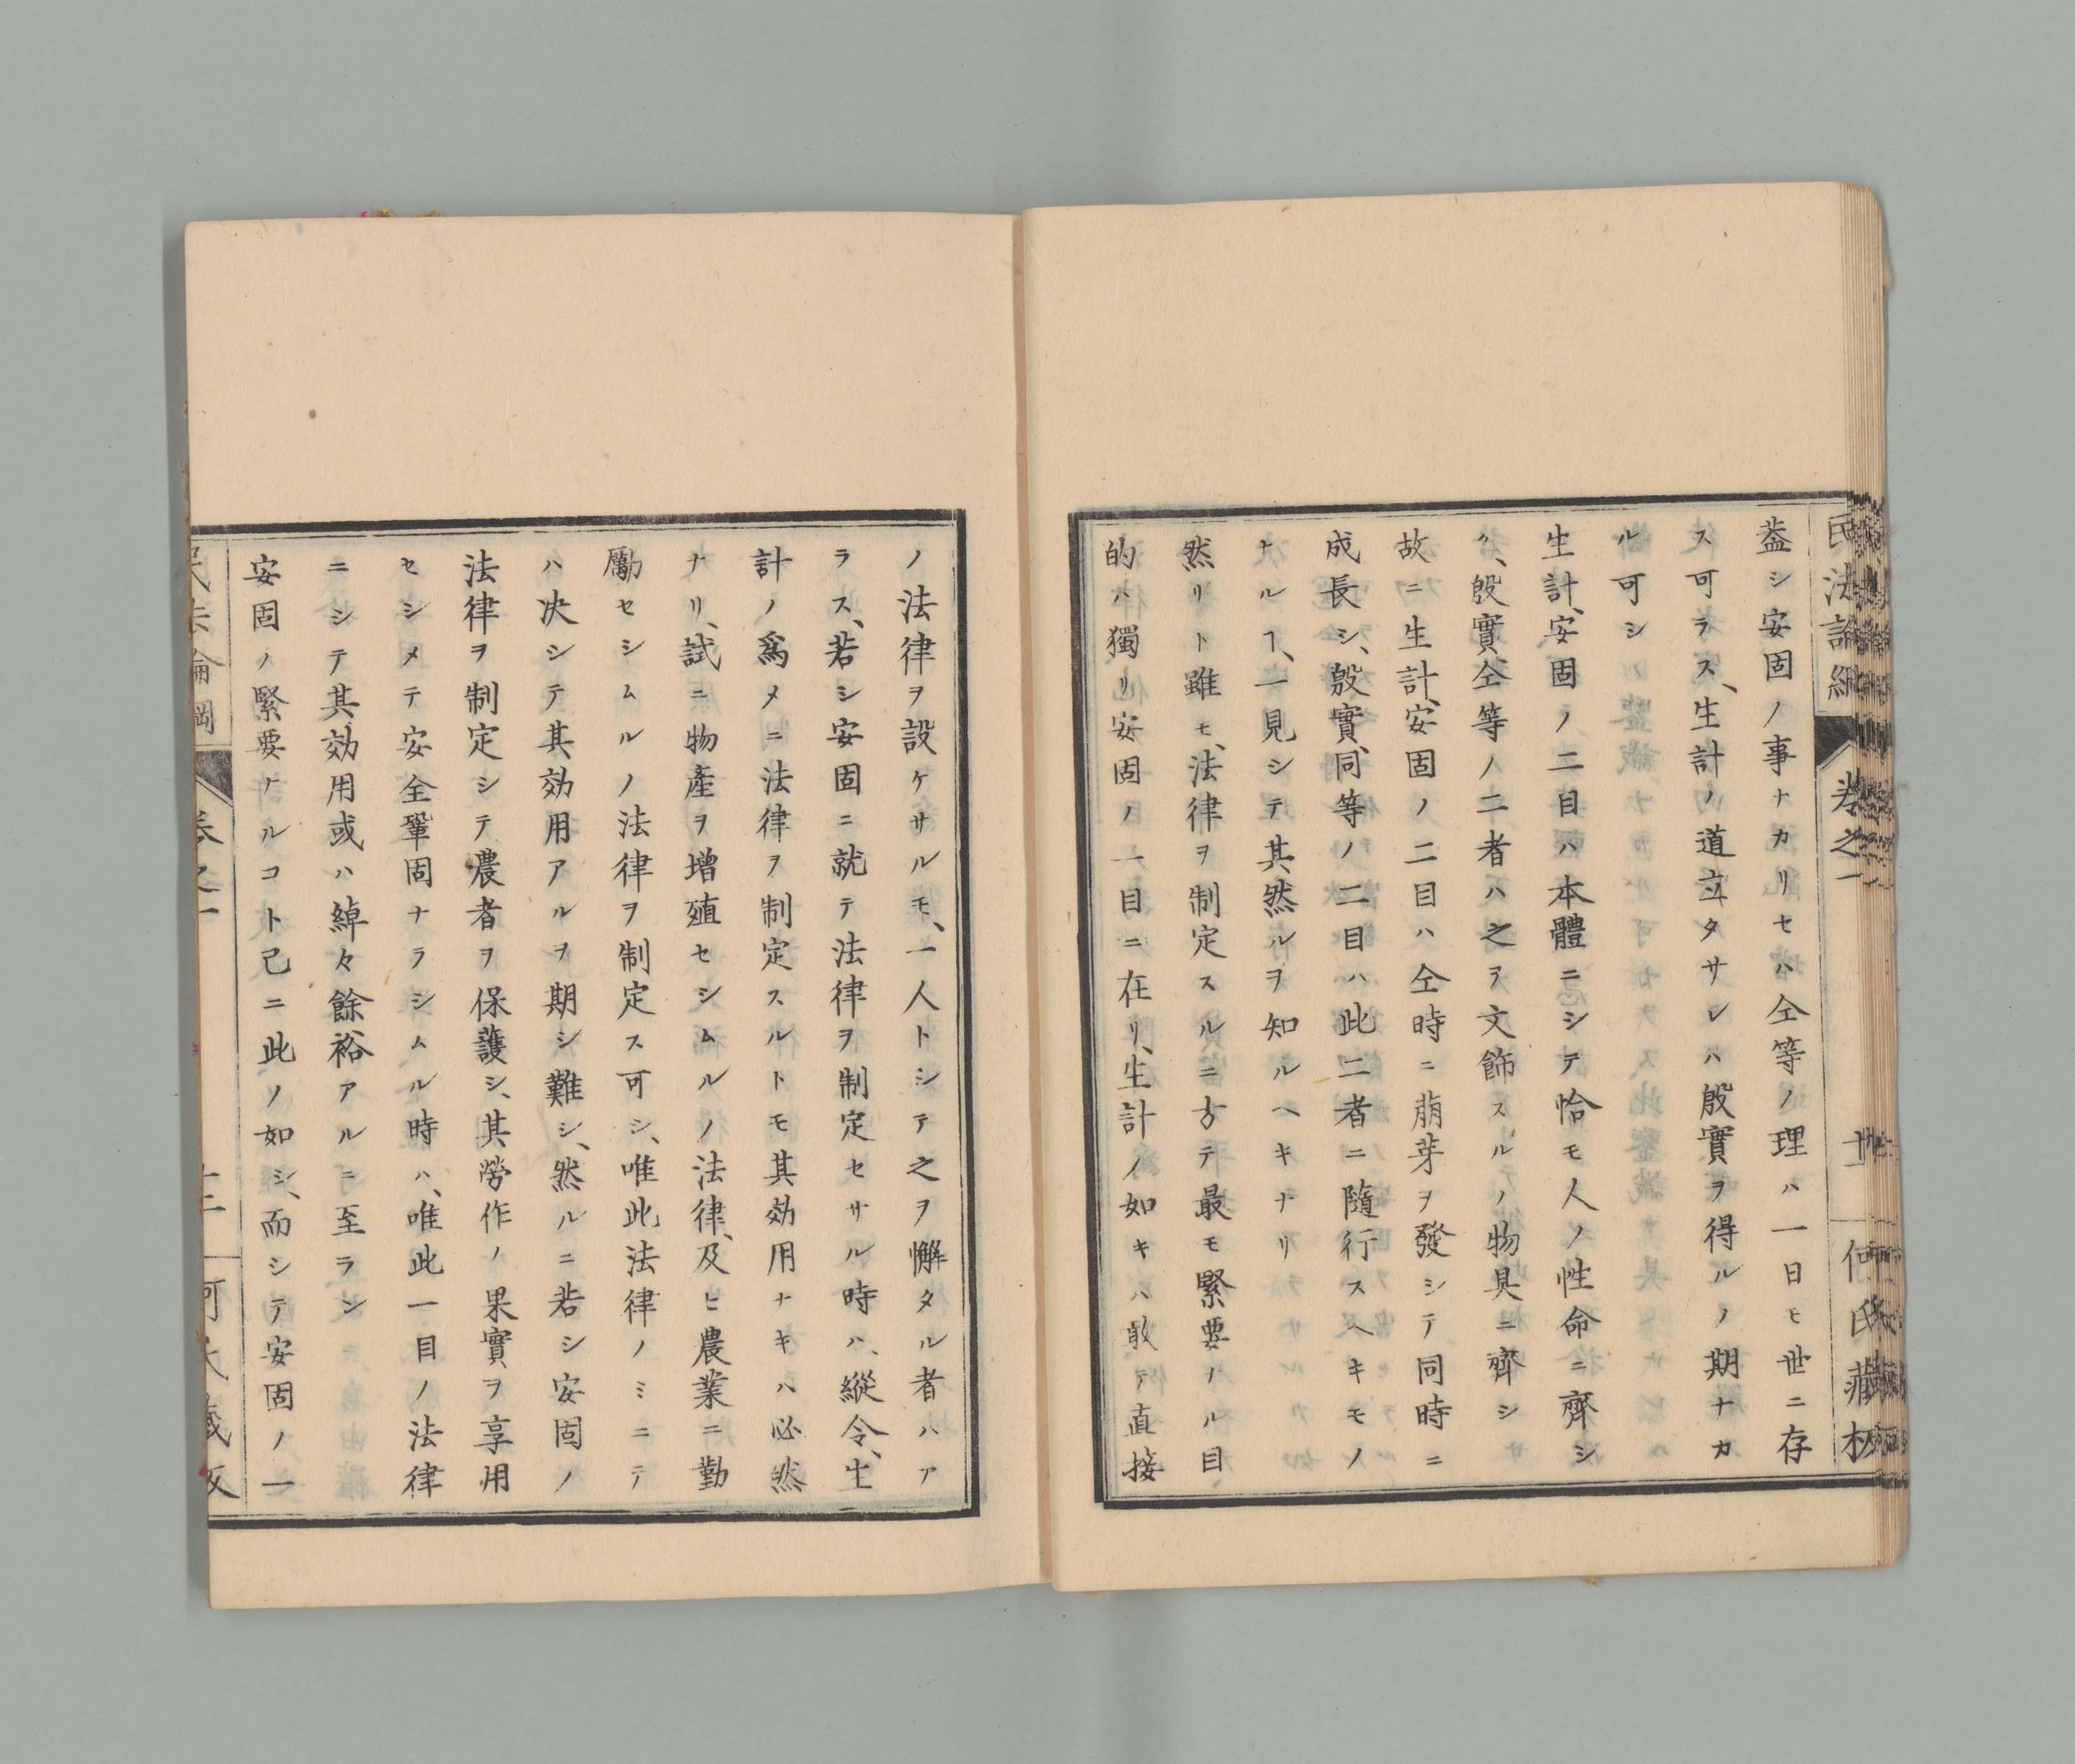 民法論綱
卷之一
十一
何氏藏板
葢シ安固ノ事ナカリセハ仝等ノ理ハ一日モ世ニ存
ス可ラス、生計ノ道立タサレハ殷實ヲ得ルノ期ナカ
ル可シ
生計、安固ノ二目ハ本體ニシテ恰モ人ノ性命ニ齊シ
ク、殷實、仝等ノ二者ハ之ヲ文飾スルノ物具ニ齊シ
故ニ生計、安固ノ二目ハ仝時ニ萠芽ヲ發シテ同時ニ
成長シ、殷實、同等ノ二目ハ此二者ニ隨行スヘキモノ
ナルヿ、一見シテ其然ルヲ知ルヘキナリ
然リト雖モ、法律ヲ制定スルニ方テ最モ緊要ナル目
的ハ獨リ安固ノ一目ニ在リ、生計ノ如キハ敢テ直接
ノ法律ヲ設ケサルモ、一人トシテ之ヲ懈タル者ハア
ラス、若シ安固ニ就テ法律ヲ制定セサル時ハ、縱令、生
計ノ爲メニ法律ヲ制定スルトモ其効用ナキハ必然
ナリ、試ニ物產ヲ增殖セシムルノ法律、及ヒ農業ニ勤
勵セシムルノ法律ヲ制定ス可シ、唯此法律ノミニテ
ハ决シテ其効用アルヲ期シ難シ、然ルニ若シ安固ノ
法律ヲ制定シテ農者ヲ保護シ、其勞作ノ果實ヲ享用
セシメテ安全鞏固ナラシムル時ハ、唯此一目ノ法律
ニシテ其効用或ハ綽々餘裕アルニ至ラン
安固ノ緊要ナルコト已ニ此ノ如シ、而シテ安固ノ一
民法論綱
卷之一